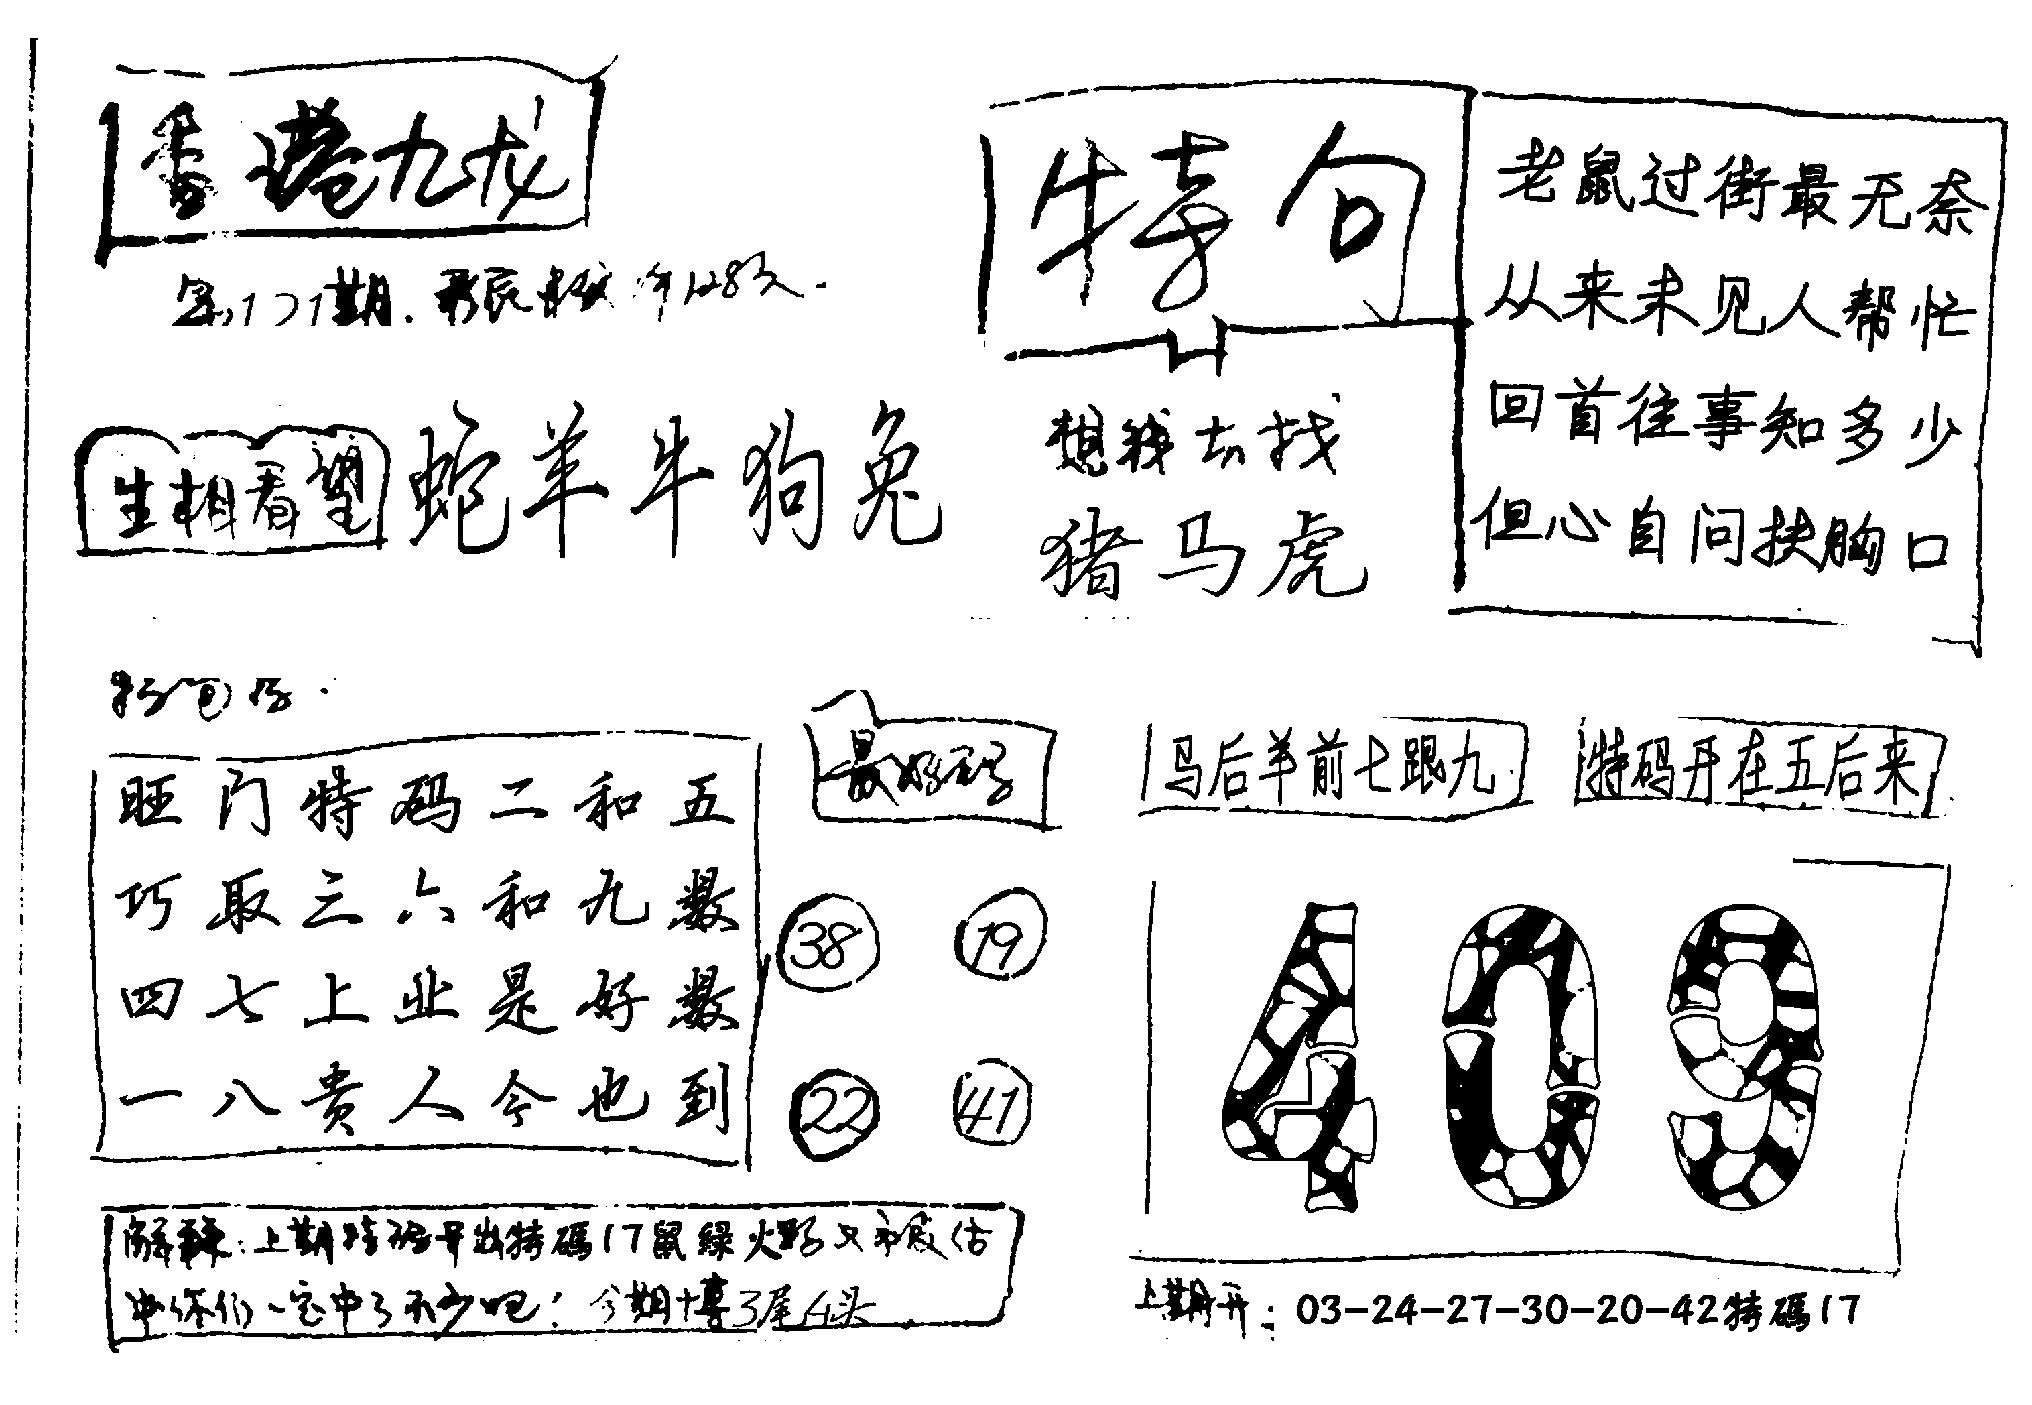 香港九龙
131期.
生相看望
蛇羊牛狗兔
特句
想钱去找
猪马虎
老鼠过街最无奈
从来未见人帮忙
回首往事知多少
但心自问扶胸口
旺门特码二和五
巧取三六和九数
四七上业是好数
一八贵人今也到
最好玩
38 19
22 41
马后羊前七跟九
特码开在五后来
409
解: 上期特码开出特碼17鼠綠火
你们一定中了不少吧! 今期十博3尾4头
上期开: 03-24-27-30-20-42特碼17